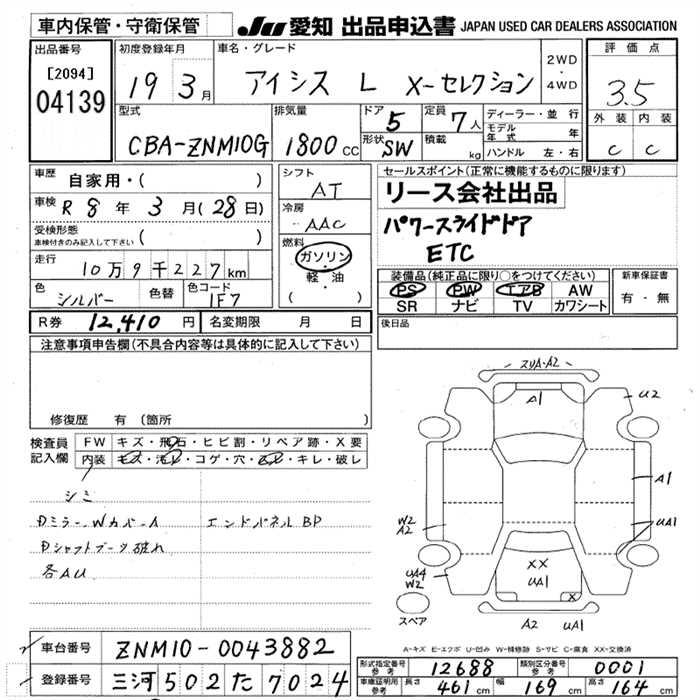 車内保管・守衛保管
JU 愛知 出品申込書 JAPAN USED CAR DEALERS ASSOCIATION
出品番号
[2094]
04139
初度登録年月
19 3月
車名・グレード
アイシス L X-セレクション
2WD
・
4WD
評価点
3.5
外装 内装
C C
型式
CBA-ZNM10G
排気量
1800 CC
ドア
5
形状
SW
定員
7人
積載
kg
ディーラー・並行
モデル年式 年
ハンドル 左・右
車歴
自家用・( )
車検
R 8年 3月(28日)
受検形態
車検付きのみ記入して下さい ( )
走行
10万9千227km
色
シルバー
色替
色コード
1F7
シフト
AT
冷房
AAC
燃料
ガソリン
・
軽・油
( )
セールスポイント(正常に機能するものに限ります)
リース会社出品
パワースライドドア
ETC
装備品(純正品に限り○をつけてください)
PS PW エアB AW
SR ナビ TV カワシート
新車保証書
有・無
R券 12,410円
名変期限 月 日
後日品
注意事項申告欄(不具合内容等は具体的に記入して下さい)
修復歴 有 (箇所
検査員
記入欄
FW キズ・飛石・ヒビ割・リペア跡・X要
内装 キズ・汚レ・コゲ・穴・ビレ・キレ・破レ
シミ
Wカバー
エンドパネル BP
破れ
各AU
A2
A1
U2
A1
UA1
W2
A2
UA4
W2
XX
UA1
X
スペア
A2 UA1
A-キズ E-エクボ U-凹み W-補修跡 S-サビ C-腐食 XX-交換済
車台番号
ZNM10-0043882
登録番号
三河502た7024
形式指定番号
参考
12688
類別区分番号
参考
0001
車庫証明用
参考
長さ 461cm 幅 169cm 高さ 164cm